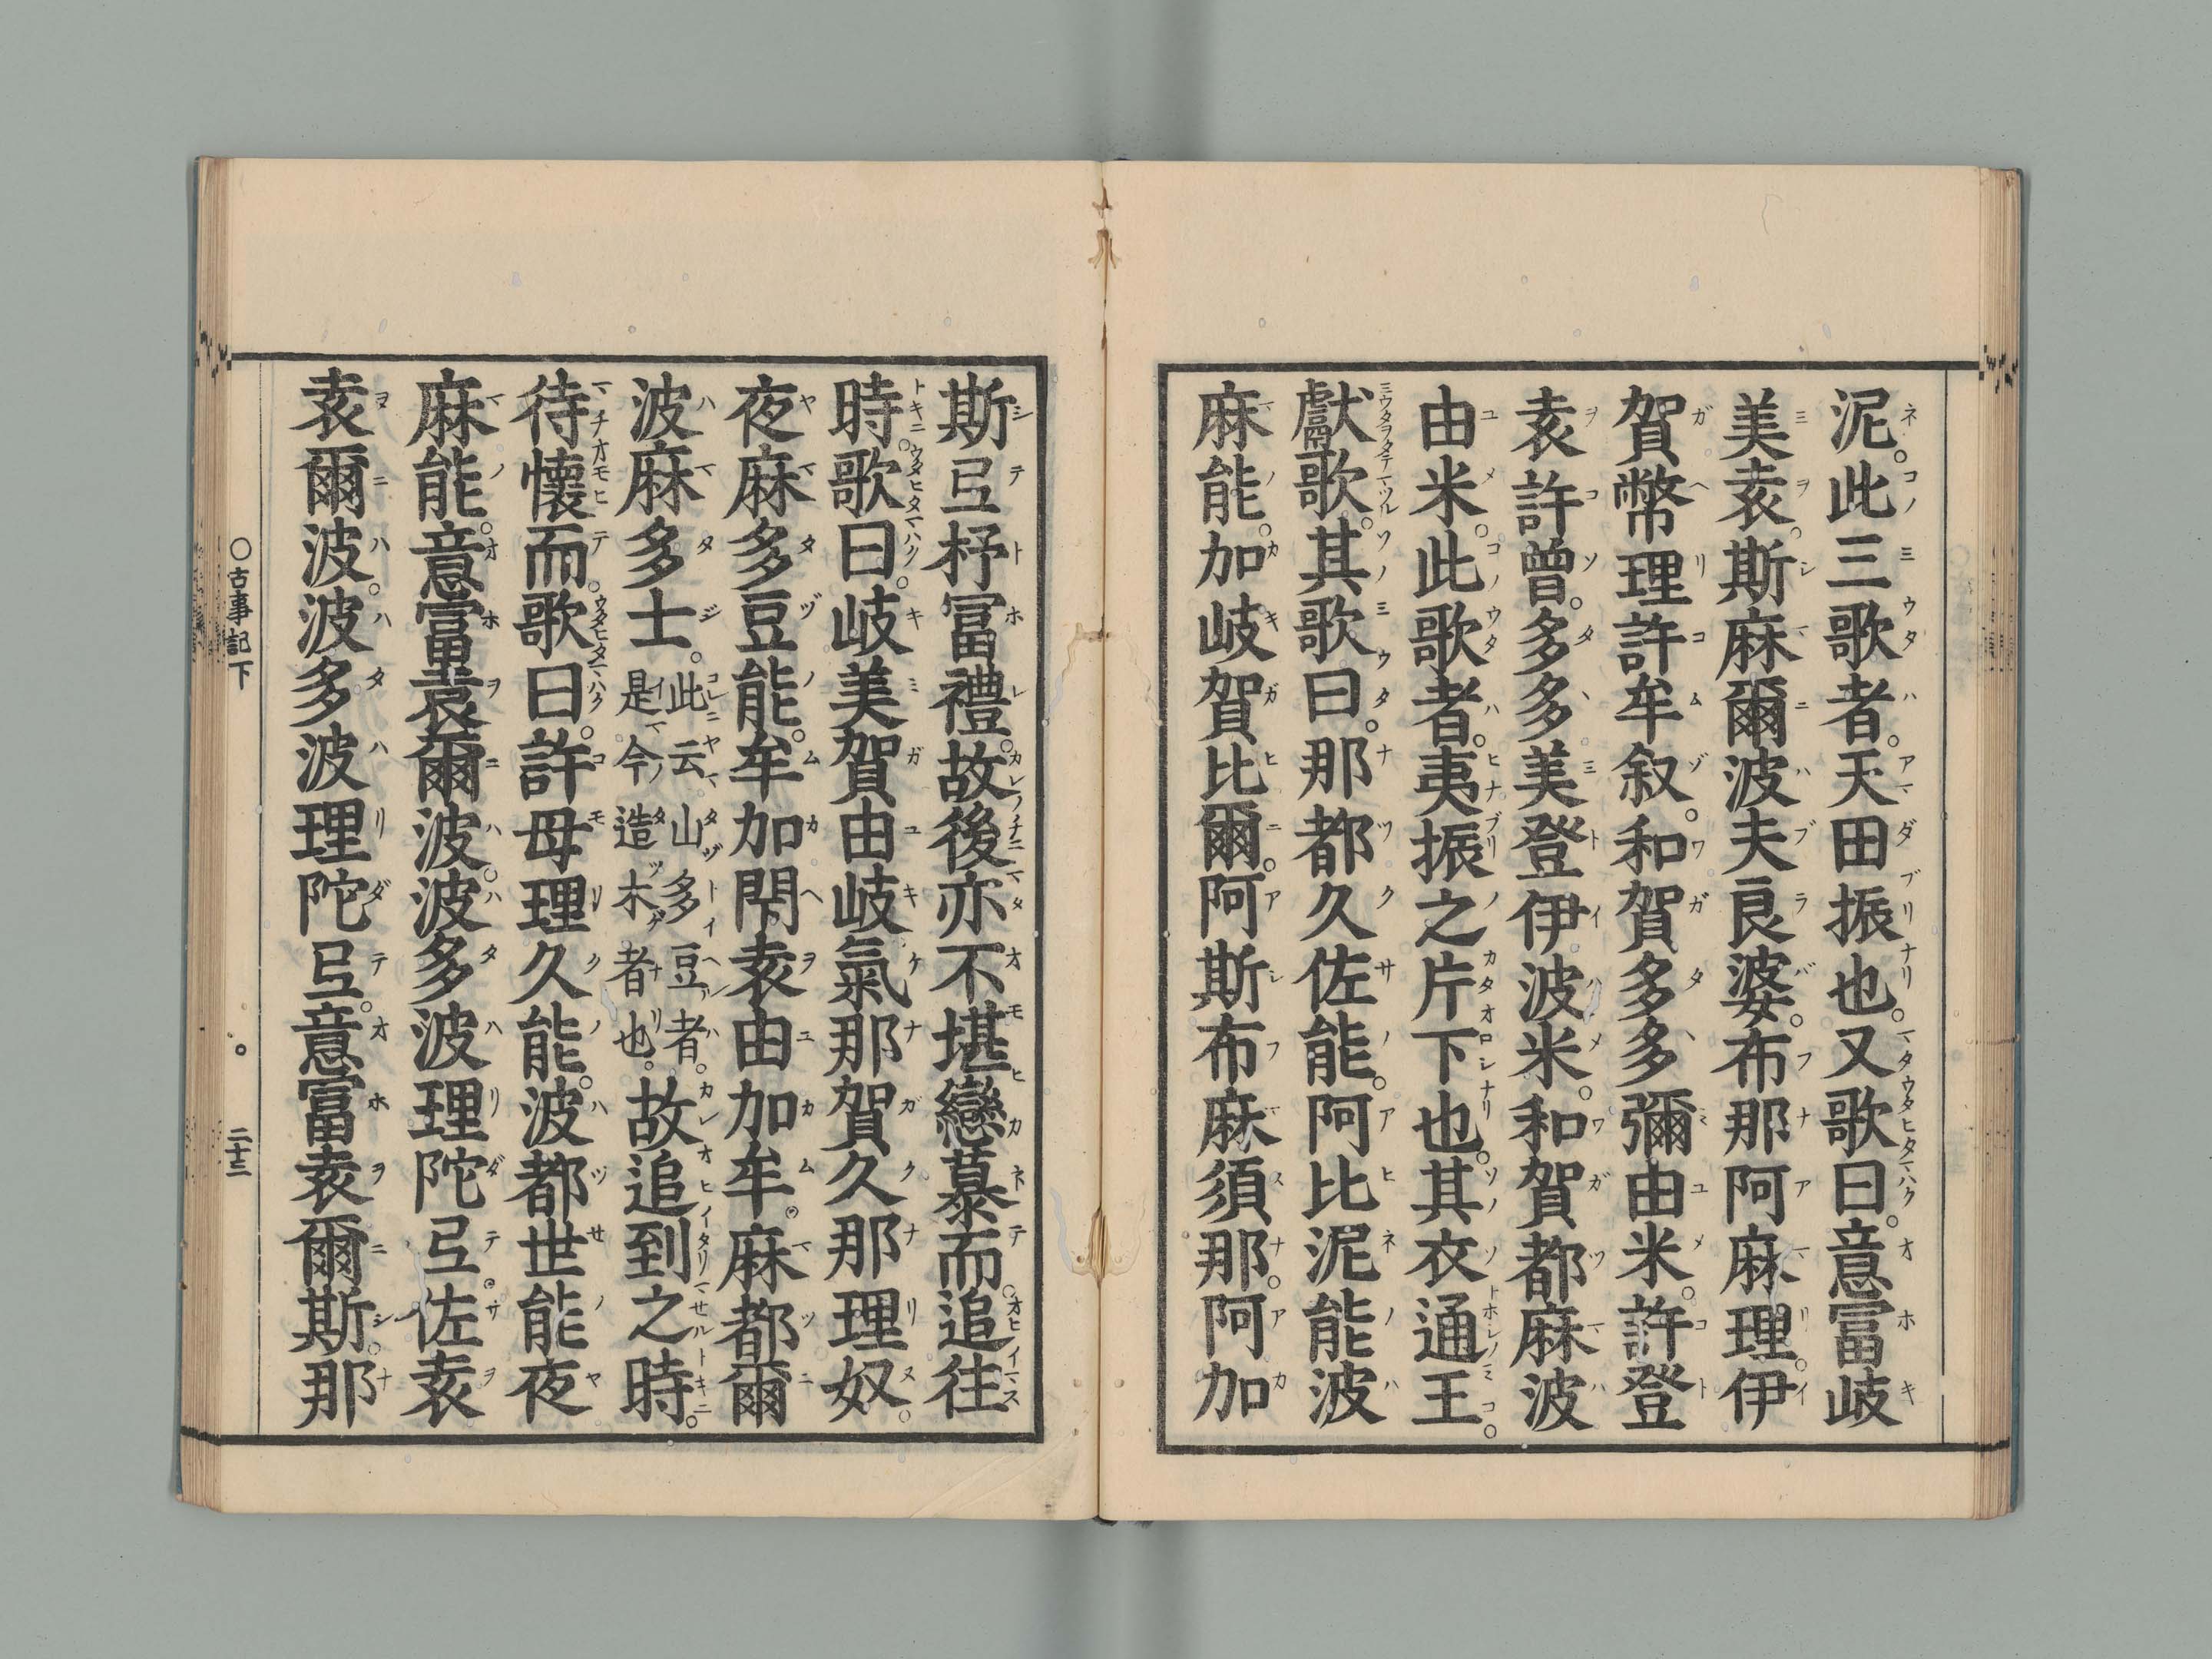 泥。此三歌者。天田振也。又歌曰。意富岐
美袁。斯麻爾波夫良婆。布那阿麻理。伊
賀幣理許牟叙。和賀多多彌由米。許登
袁許曾。多多美登伊波米。和賀都麻波
由米。此歌者。夷振之片下也。其衣通王。
獻歌。其歌曰。那都久佐能。阿比泥能波
麻能。加岐賀比爾。阿斯布麻須那。阿加
斯弖杼富禮。故後亦不堪戀慕而。追往
時。歌曰。岐美賀由岐氣那賀久那理奴。
夜麻多豆能。牟加閇袁由加牟。麻都爾
波麻多士。此云山多豆者。是今造木者也。故追到之時。
待懷而。歌曰。許母理久能。波都世能夜
麻能。意富袁爾波。波多波理陀弖。佐袁
袁爾波。波多波理陀弖。意富袁爾斯。那
○古事記下 二十三